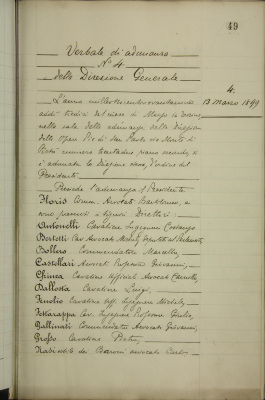 49
Verbale di adunanza
N° 4
della Direzione Generale
4.
13 marzo 1899
L'anno milleottocentonovantanove
addì tredici del mese di Marzo in Torino,
nella sala delle adunanze della Direzione
delle Opere Pie di San Paolo
il
è adunata la Direzione stessa, d'ordine del
Presidente
Presiede l'adunanza il Presidente
Floris Comm. Avvocato Bartolomeo, e
sono presenti i Signori Direttori:
Antonelli Cavaliere Ingegnere Costanzo
Bertetti Cav. Avvocato Michele, Deputato al Parlamento
Bollero Commendatore Marcello,
Castellari Avvocato Professore Giovanni,
Chinea Cavaliere Ufficiale Avvocato Camillo,
Dallosta Cavaliere Luigi,
Fenolio Cavaliere Uff. Ingegnere Michele,
Fettarappa Cav. Ingegnere Professore Giulio,
Gallinati Commendatore Avvocato Giovanni,
Cavaliere Pietro,
dei Baroni avvocato Carlo